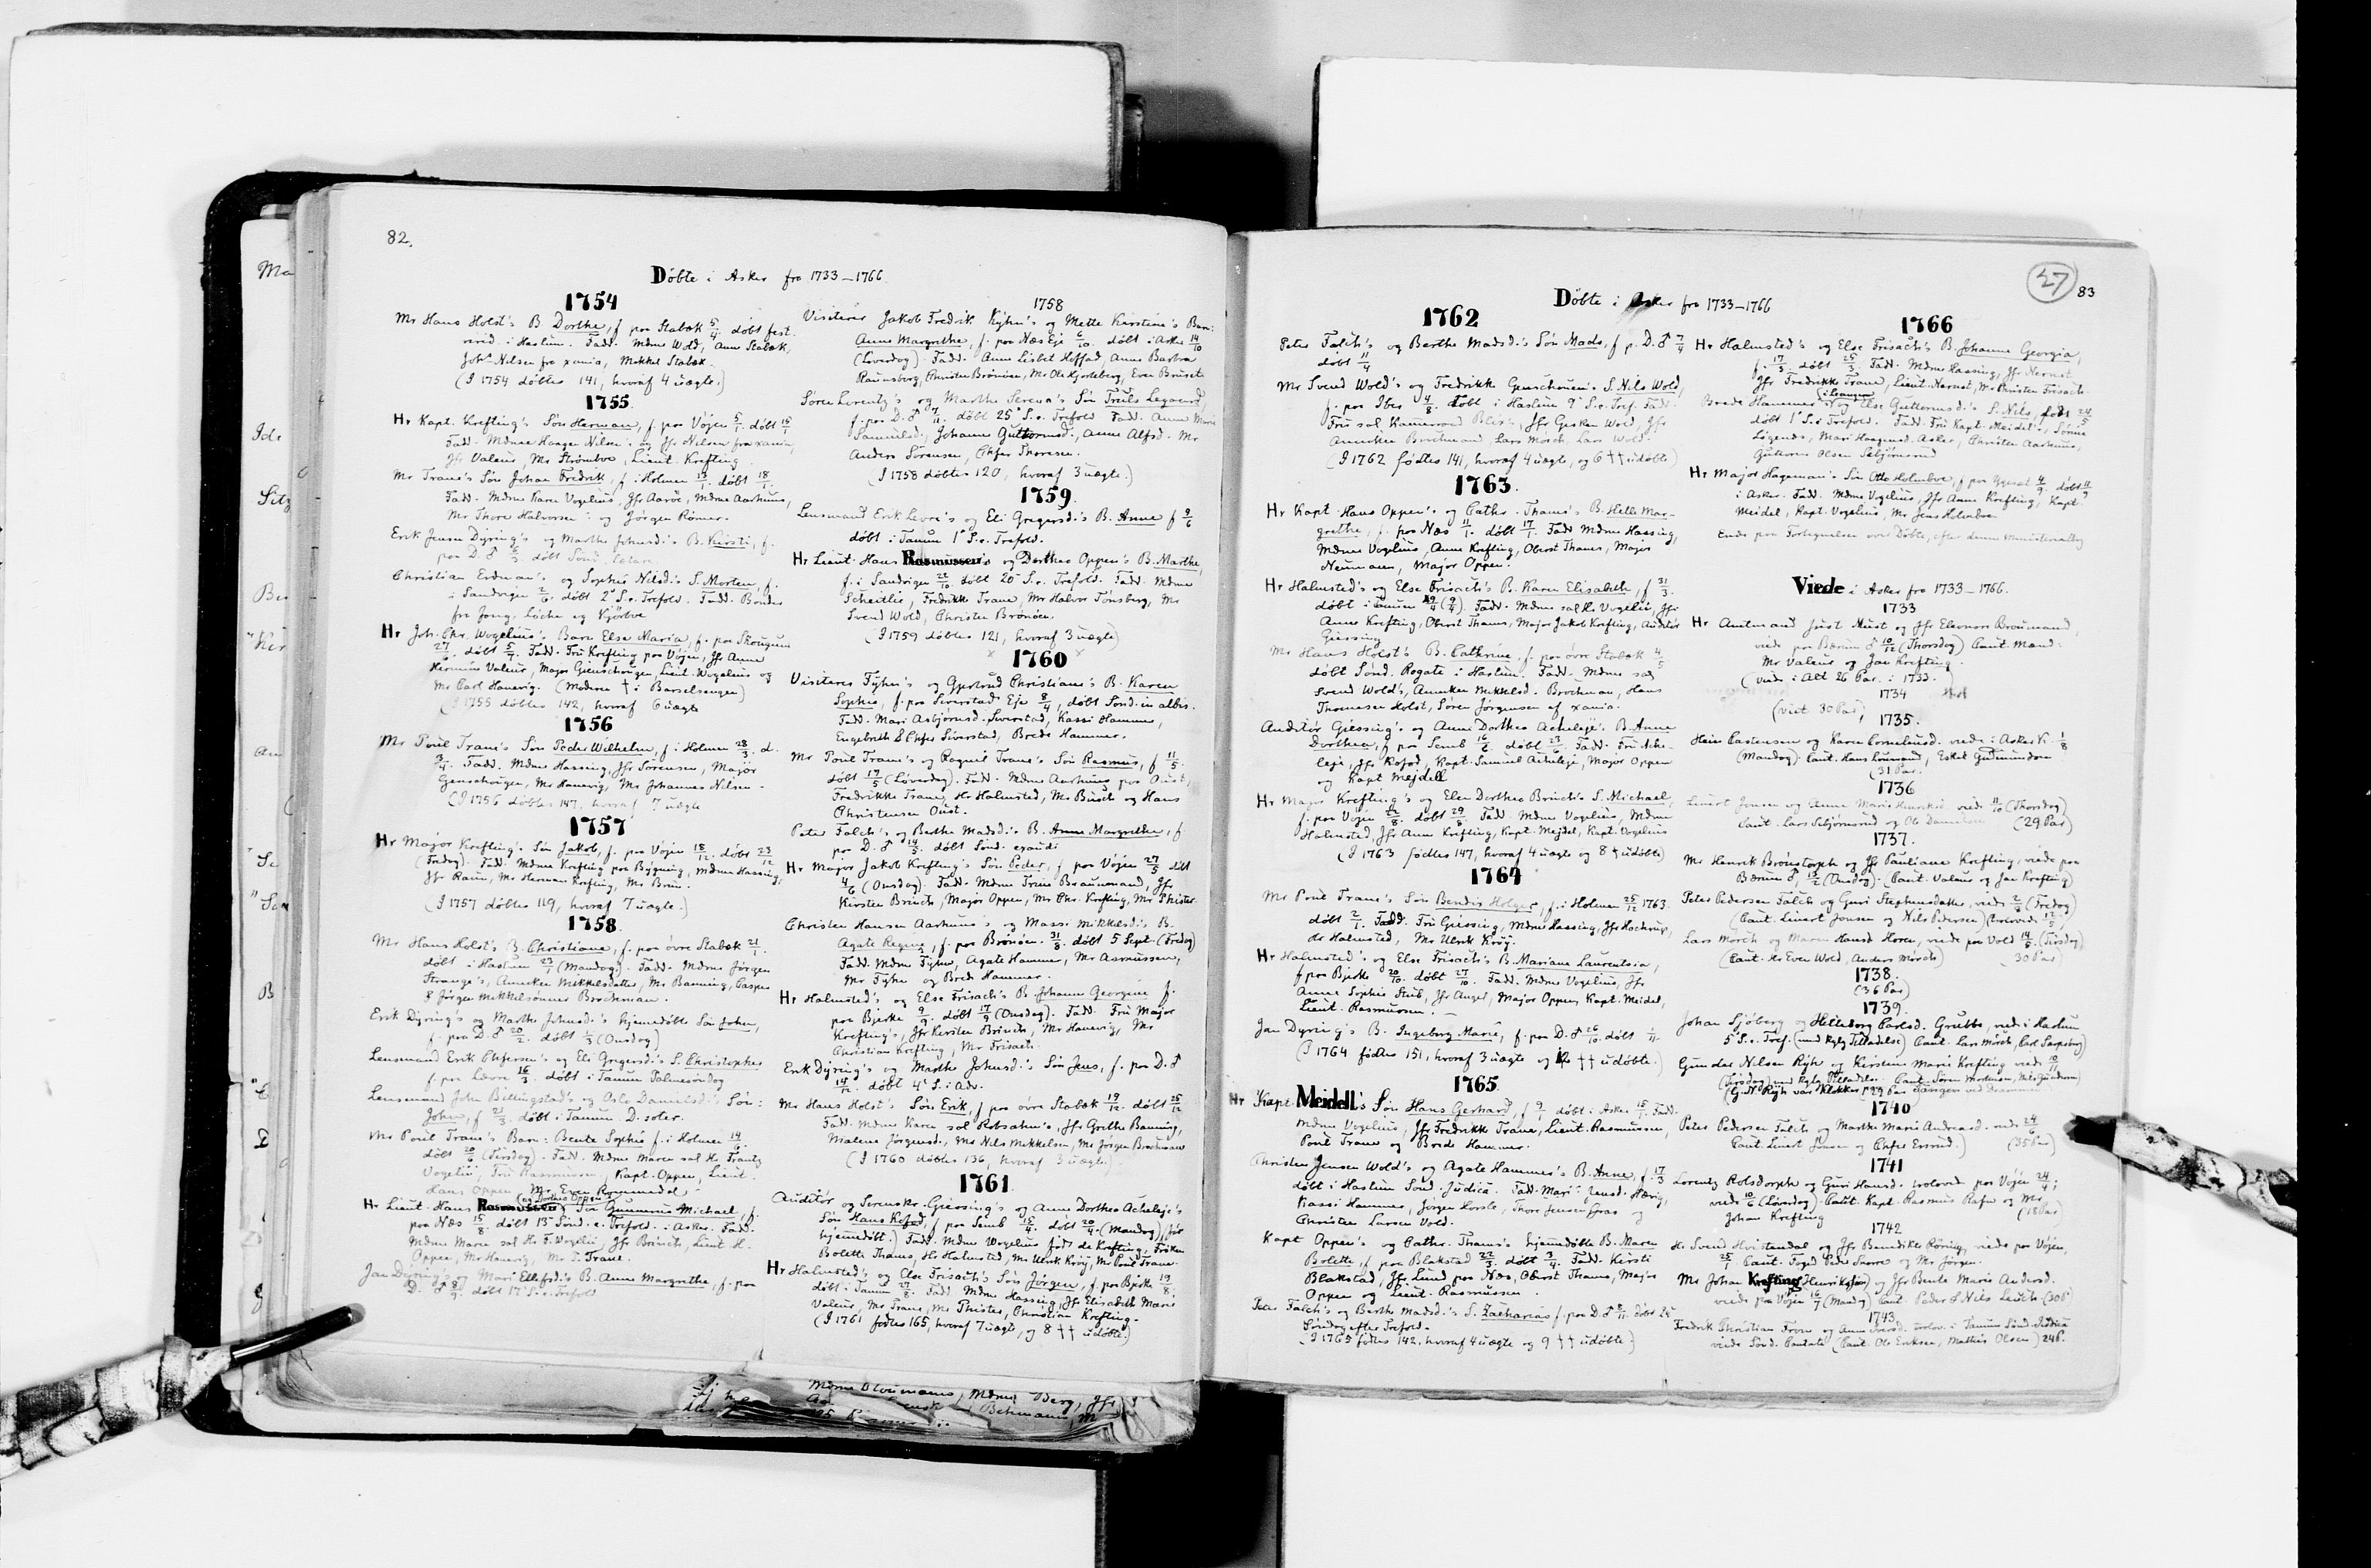 82.
Døbte i Asker fra 1733–1766
1754
Mr Hans Holst's B. Dorthe, f paa Stabæk 5/4 døbt fest.
i Haslum. Fadd. Mdme Wold, Anne Stabæk,
Joh. Nilsen fra xania, Mikkel Stabæk.
(I 1754 døbtes 141, hvoraf 4 uægte.)
1755
Hr Kapt. Krefting's Søn Herman, f. paa Vøjen 5/1. døbt 15/1
Fadd. Mdme Haagen Nilsen's og Jfr Nilsen fra xania,
Jfr Valeur, Mr Strømboe, Lieut. Krefting
Mr Trane's Søn Johan Fredrik, f. i Holmen 13/1. døbt 18/1.
Fadd. Mdme Karen Vogelius, Jfr Aarøe, Mdme Aarhuus,
Mr Thore Halvorsen og Jørgen Rømer.
Erik Jensen Dyring's og Marthe Johnsd.'s B. Kirsti, f.
paa D. ♂ døbt Sønd.
Christian Erdman's og Sophie Nilsd.'s S. Morten, f.
i Sandvigen 2/6. døbt 2' S. e. Trefold. Fadd. Bønder
fra Jong, Løche og Kjørboe
Hr Joh. Chr. Wogelius's Barn Else Maria, f. paa Skougum
27/ . døbt 5/ . Fadd. Fru Krefting paa Vøjen, Jfr Anne
Hermine Valeur, Major Gienschougen, Lieut. Wogelius og
Mr Carl Hanevig. (Moderen † i Barselsengen)
(I 1755 døbtes 142, hvoraf 6 uægte
1756
Mr Poul Trane's Søn Peder Wilhelm, f i Holmen 28/3. d.
3/4. Fadd. Mdme Hassing, Jfr Sørensen, Major
Genschougen, Mr Hanevig, Mr Johannes Nilsen.
(I 1756 døbtes 147, hvoraf 7 uægte
1757
Hr Major Krefting's Søn Jakob, f. paa Vøjen 15/12. døbt 23/12
(Fredag). Fadd. Mdme Krefting paa Bygning, Mdme Hassing,
Jfr Raun, Mr Herman Krefting, Mr Brun.
(I 1757 døbtes 119, hvoraf 7 uægte.)
1758.
Mr Hans Holst's B. Christiane, f. paa øvre Stabæk 21/1.
døbt i Haslum 23/1 (Mandag). Fadd. Mdme Jørgen
Strange's, Anneken Mikkelsdatter, Mr Banning, Casper
& Jørgen Mikkelsønner Brochman.
Erik Dyring's og Marthe Johnsd.'s hjemmedøbte Søn John,
f. paa D. ♂ 20/2. døbt 1/3 (Onsdag)
Lensmand Erik Chfersen's og Eli Gregersd.'s S. Christopher
f. paa Levre 16/3. døbt i Tanum Palmesøndag
Lensmand John Billingstad's og Osle Danielsd.'s Søn:
John, f 21/3. døbt i Tanum D. soter.
Mr Poul Trane's Barn: Bente Sophie f. i Holmen 14/6.
døbt 20/6 (Tirsdag). Fadd. Mdme Maren sal Hr Frantz
Vogelii, Fru Rasmussen, Kapt. Oppen, Lieut.
Hans Oppen, Mr Even Rommedal
Hr Lieut. Hans Rasmussen's (og Dorthea Oppen's) Søn Gunnerus Michael, f.
paa Næs 15/8. døbt 13' Sønd. e. Trefold. i Asker. Fadd.
Mdme Maren sal Hr F. Vogelii, Jfr Brinch, Lieut H.
Oppen, Mr Hanevig, Mr J. Trane.
Jan Dyring's og Mari Ellefsd.'s B. Anne Margrethe, f. paa
D. ♂ 8/9. døbt 17' S. e. Trefold
1758
Visitører Jakob Fredrik Kyhn's og Mette Kirstine's Barn:
Anne Margrethe, f. paa Næs Eje 6/10. døbt i Asker 14/10
(Løverdag). Fadd. Anne Lisbet Hoffad, Anne Barbra
Raunsborg, Christen Brønøen, Mr Ole Kjorteberg, Even Bruset
Søren Lorentz's og Marthe Serena's Søn Truels Legaard,
f. paa D. ♂ 7/11. døbt 25' S. e. Trefold Fadd. Anne Marie
Samuelsd., Johanne Guttormsd., Anne Alfsd. Mr
Anders Sørensen, Chfer Thoresen.
(I 1758 døbtes 120, hvoraf 3 uægte.)
1759.
Lensmand Erik Levre's og Eli Gregersd.'s B. Anne f 9/6
døbt i Tanum 1' S. e. Trefold.
Hr Lieut. Hans Rasmussen's og Dorthea Oppen's B. Marthe,
f. i Sandvigen 22/10. døbt 20' S. e. Trefold. Fadd. Mdme
Scheitlis, Fredrikke Trane, Mr Halvor Tønsberg, Mr
Svend Wold, Christen Brønøen.
(I 1759 døbtes 121, hvoraf 3 uægte)
1760
Visitører Fyhn's og Gjertrud Christians's B. Karen
Sophie, f. paa Sverstad Eje 8/4, døbt Sønd. in albis.
Fadd. Mari Asbjørnsd. Sverstad, Kassi Hammer,
Engebreth & Chfer Sverstad, Brede Hammer.
Mr Poul Trane's og Ragnil Trane's Søn Rasmus, f. 11/5.
døbt 17/5 (Løverdag). Fadd. Mdme Aarhuus paa Oust,
Fredrikke Trane, Hr Halmsted, Mr Busch og Hans
Christensen Oust.
Peter Falch's og Berthe Madsd.'s B. Anne Margrethe, f
paa D. ♂ 14/5. døbt Sønd. exaudi
Hr Major Jakob Krefting's Søn Peder, f paa Vøjen 27/5 døbt
4/6 (Onsdag). Fadd. Mdme Trine Braunmand, Jfr
Kirsten Brinch, Major Oppen, Mr Chr. Krefting, Mr Phister.
Christen Hansen Aarhuus's og Massi Mikkelsd.'s B.
Agate Regine, f. paa Brønøen 31/8. døbt 5 Sept. (Fredag)
Fadd. Mdme Fyhn, Agate Hammer, Mr Asmussen,
Mr Fyhn og Brede Hammer.
Hr Halmsted's og Else Frisach's B. Johanne Georgine f.
paa Bjerke 9/9. døbt 17/9 (Onsdag). Fadd. Fru Major
Krefting's, Jfr Kirsten Brinch, Mr Hanevig, Mr
Christian Krefting, Mr Frisach.
Erik Dyring's og Marthe Johnsd.'s Søn Jens, f. paa D. ♂
14/12. døbt 4' S. i Adv.
Mr Hans Holst's Søn Erik, f paa øvre Stabæk 19/12. døbt 25/12
Fadd. Mdme Karen sal Robsahm's, Jfr Grethe Banning,
Malene Jørgensd., Mr Nils Mikkelsen, Mr Jørgen Brochman
(I 1760 døbtes 136, hvoraf 3 uægte.)
1761
Auditør og Sorenskr. Giessing's og Anne Dorthea Acheleje's
Søn Hans Kofod, f paa Semb 15/4. døbt 20/4. (Mandag) (før
hjemmedøbt.) Fadd. Mdme Wogelius født de Krefting, Frøken
Bolette Thams, Hr Halmsted, Mr Ulrik Krøy, Mr Poul Trane.
Hr Halmsted's og Else Frisach's Søn Jørgen, f paa Bjerke 19/8.
døbt i Tanum 27/8. Fadd Mdme Hassing, Jfr Elisabeth Marie
Valeur, Mr Trane, Mr Phister, Christian Krefting.
(I 1761 fødtes 165, hvoraf 7 uægte, og 8 †† udøbte.)
27
83
Døbte i Asker fra 1733–1766
1762
Peter Falch's og Berthe Madsd.'s Søn Mads, f p. D. ♂ 7/4
døbt 11/4
Mr Svend Wold's og Fredrikke Genschouen's S. Nils Wold,
f. paa Iber 4/8. døbt i Haslum 9' S. e. Tref. Fadd.
Fru sal Kammerraad Blix's, Jfr Gesken Wold, Jfr
Anneken Brochmand, Lars Mørch, Lars Wold.
(I 1762 fødtes 141, hvoraf 4 uægte, og 6 †† udøbte)
1763.
Hr Kapt. Hans Oppen's og Cathr. Thams's B. Helle Mar-
grethe, f. paa Næs 11/1. døbt 17/1. Fadd Mdme Hassing,
Mdme Vogelius, Anne Krefting, Oberst Thams, Major
Neumann, Major Oppen.
Hr Halmsted's og Else Frisach's B. Karen Elisabeth, f 31/3.
døbt i Tanum (9/4). Fadd. Mdme sal Hr Vogelii, Jfr
Anne Krefting, Oberst Thams, Major Jakob Krefting, Auditør
Giessing
Mr Hans Holst's B. Cathrine, f. paa øvre Stabæk 4/5
døbt Sønd. Rogate i Haslum. Fadd. Mdme sal
Svend Wold's, Anneken Mikkelsd. Brochman, Hans
Thomesen Holst, Søren Jørgensen af xania.
Auditør Giessing's og Anne Dorthea Acheleje's B. Anne
Dorthea, f paa Semb 16/6. døbt 23/6. Fadd. Fru Ache-
leje, Jfr Kofod, Kapt. Samuel Acheleje, Major Oppen
og Kapt Mejdell
Hr Major Krefting's og Elen Dorthea Brinch's S. Michael,
f. paa Vøjen 22/8. døbt 29/8. Fadd. Mdme Vogelius, Mdme
Halmsted, Jfr Anne Krefting, Kapt. Mejdel, Kapt. Vogelius
(I 1763 fødtes 147, hvoraf 4 uægte og 8 † udøbte)
1764
Mr Poul Trane's Søn Bendix Holger, f. i Holmen 25/12 1763.
døbt 2/1. Fadd. Fru Giessing, Mdme Hassing, Jfr Hochrup,
Hr Halmsted, Mr Ulrik Krøy.
Hr Halmsted's og Else Frisach's B. Mariane Laurentsia,
f paa Bjerke 20/10. døbt 27/10. Fadd. Mdme Vogelius, Jfr
Anne Sophie Stub, Jfr Angel, Major Oppen, Kapt. Meidel,
Lieut. Rasmussen.
Jan Dyring's B. Ingeborg Marie, f. paa D. ♂ 26/10. døbt 1/11.
(I 1764 fødtes 151, hvoraf 3 uægte og 12 †† udøbte.)
1765
Hr Kapt. Meidell's Søn Hans Gerhard, f 9/1 døbt i Asker 15/1. Fadd.
Mdme Vogelius, Jfr Fredrikke Trane, Lieut. Rasmussen,
Poul Trane og Brede Hammer.
Christen Jensen Wold's og Agate Hammer's B. Anne, f. 17/3
døbt i Haslum Sønd. Judica. Fadd. Mari Jensd. Hævig,
Kassi Hammer, Jørgen Horsle, Thore Jensen Gras og
Christen Larsen Vold.
Kapt Oppen's og Cathr. Thams's hjemmedøbte B. Maren
Bolette, f paa Blakstad 22/3. døbt 3/4. Fadd. Kirsti
Blakstad, Jfr Lund paa Næs, Oberst Thams, Major
Oppen og Lieut. Rasmussen.
Peter Falch's og Berthe Madsd.'s S. Zacharias f. paa D. ♂ døbt 25
Søndag efter Trefold.
(I 1765 fødtes 142, hvoraf 4 uægte og 9 †† udøbte.)
1766
Hr Halmsted's og Else Frisach's B. Johanne Georgia,
f. 17/3. døbt 25/3. Fadd. Mdme Hassing, Jfr Hernst
Jfr Fredrikke Trane, Lieut. Hernst, Mr Christen Frisach
Brede Hammer's (i Leangen) og Else Guttormsd.'s S. Nils, født 24/5
døbt 1' S. e Trefold. Fadd. Fru Kapt. Meidel's, Sønne
Løgens, Mari Haagensd. Asker, Christen Aarhuus,
Guttorm Olsen Sebjørnsrud
Hr Major Hageman's Søn Otto Holmboe, f paa 4/9 døbt 11/9
i Asker. Fadd. Mdme Vogelius, Jfr Anne Krefting, Kapt.
Meidel, Kapt. Vogelius, Mr Jens Holmboe
Ende paa Fortegnelsen over Døbte, efter denne Ministerialbog
Viede i Asker fra 1733–1766.
1733
Hr Amtmand Just Must og Jfr Eleonore Braumand,
viede paa Bærum ♂ 10/12 (Thorsdag) Caut. Mand:
Mr Valeur og Jan Krefting.
(viede i Alt 26 Par. i 1733.)
1734
(viet 30 Par)
1735.
Hein Castensen og Karen Corneliusd. viede i Asker K. 1/8
(Mandag) Caut. Hans Louvmand, Eskel Gudmundsen
(31 Par.
1736
Linert Jonsen og Anne Marie Henriksd. viede 11/10 (Thorsdag)
Caut. Lars Sebjørnsrud og Ole Danielsen (29 Par)
1737.
Mr Henrik Brønstorph og Jfr Pauliane Krefting, viede paa
Bærum ♂, 13/2 (Onsdag). (Caut. Valeur og Jan Krefting)
Peter Pedersen Falch og Guri Stephensdatter, viede 2/ (Fredag)
(Caut. Linert Jonsen og Nils Pedersen) (trolovede 12/5)
Lars Mørch og Maren Hansd Horn, viede paa Vold 14/5. (Tirsdag)
(Caut. Hr Even Wold, Anders Mørch) 30 Par)
1738.
(36 Par)
1739.
Johan Sjøberg og Hilleborg Carlsd. Grubbe, viede i Haslum
5' S. e. Tref. (med kglg Tilladelse) Caut. Lars Mørch, Carl Sarpsborg)
Gunder Nilsen Ryh og Kirsten Marie Krefting viede 10/11
(Tirsdag) med kglg Tilladelse. Caut. Søren Mortensen, Nils Gundersen)
(G. N. Ryh var Klokker paa
1740
Peter Pedersen Falch og Marthe Marie Andreasd. viede 24/6
Caut. Linert Jonsen og Chfer Ersrud.) (35 Par)
1741
Lorentz Rolsdorph og Guri Hansd. trolovede paa Vøjen 24/4;
viede 10/6 (Løverdag) Caut. Kapt. Rasmus Rafn og Mr
Johan Krefting (18 Par)
1742
Hr Svend Hvistendal og Jfr Benedikte Røring, viede paa Vøjen,
25/1 Caut. Foged Peder Snorre og Mr Jørgen.
Mr Johan Krefting (Henriksøn) og Jfr Bente Marie Andersd.
viede paa Vøjen 16/7 (Mandag) Caut. Peder & Nils Leuch. (30 P.)
1743
Fredrik Christian Tronn og Anne Iversd. trolov. i Tanum Sønd. Judica
viede Sønd. Cantate (Caut. Ole Eriksen, Mathis Olsen) 24 P.